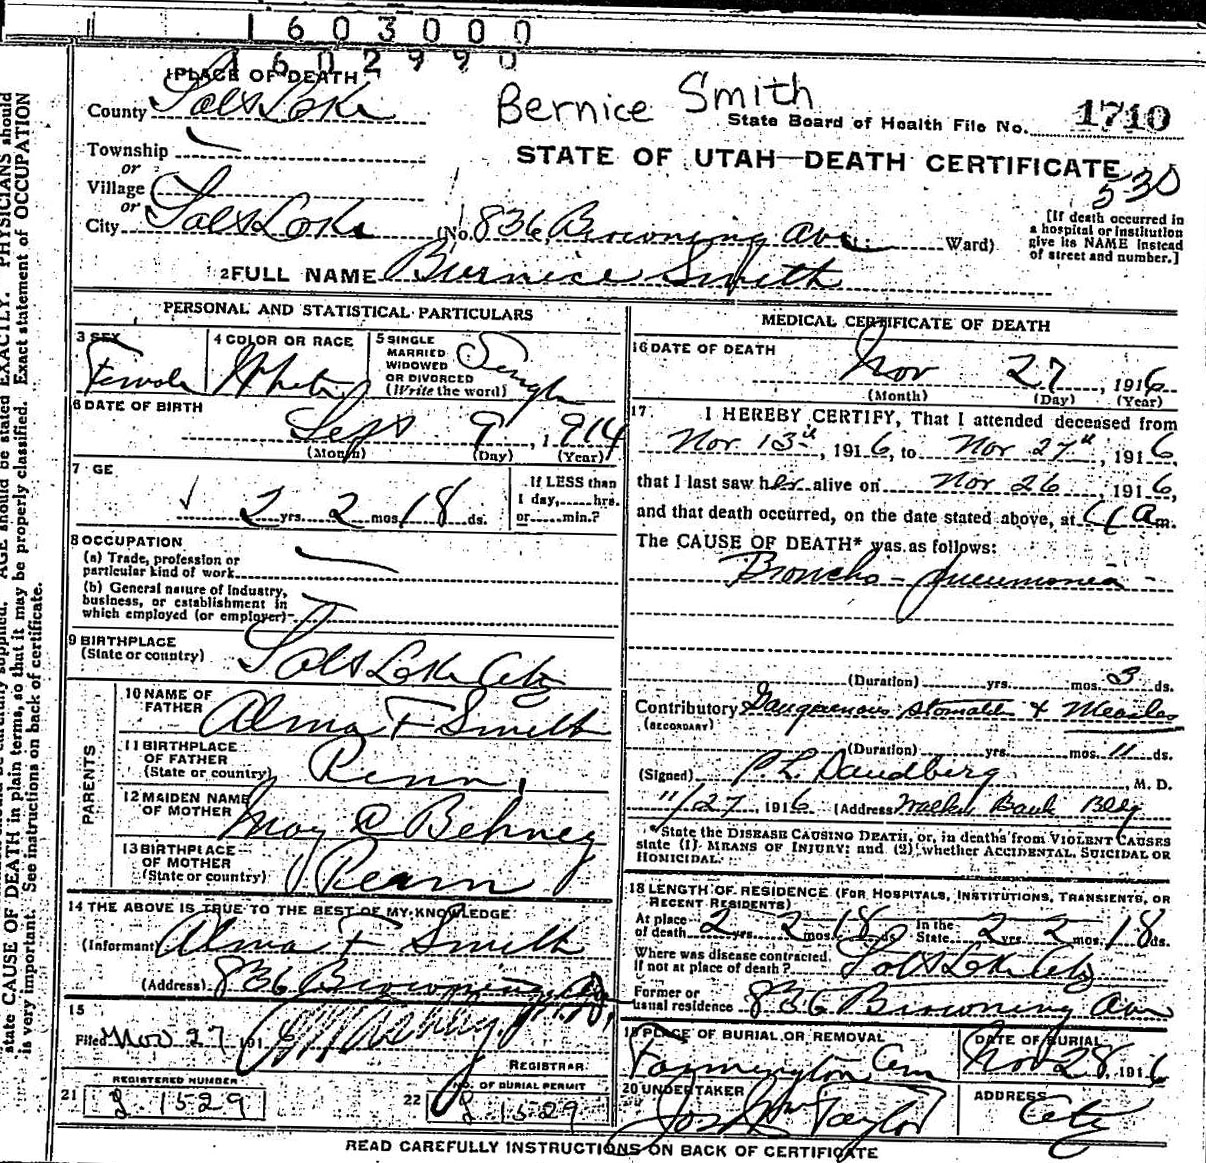 1603000
1602990
1 PLACE OF DEATH
Bernice Smith
County Salt Lake
State Board of Health File No. 1710
Township
or
STATE OF UTAH—DEATH CERTIFICATE
530
Village
or
City Salt Lake (No. 836 Browning Ave. Ward)
[If death occurred in
a hospital or institution
give its NAME instead
of street and number.]
2 FULL NAME Burnice Smith
PERSONAL AND STATISTICAL PARTICULARS
3 SEX Female
4 COLOR OR RACE White
5 SINGLE
MARRIED
WIDOWED
OR DIVORCED
(Write the word) Single
6 DATE OF BIRTH
Sept 9, 1914
(Month) (Day) (Year)
7 GE
2 yrs. 2 mos. 18 ds.
If LESS than
1 day,......hrs.
or......min.?
8 OCCUPATION
(a) Trade, profession or
particular kind of work
(b) General nature of Industry,
business, or establishment in
which employed (or employer)
9 BIRTHPLACE
(State or country) Salt Lake City
PARENTS
10 NAME OF
FATHER Alma F Smith
11 BIRTHPLACE
OF FATHER
(State or country) Penn,
12 MAIDEN NAME
OF MOTHER May C Behney
13 BIRTHPLACE
OF MOTHER
(State or country) Penn
14 THE ABOVE IS TRUE TO THE BEST OF MY KNOWLEDGE
(Informant) Alma F Smith
(Address) 836 Browning Av
15
Filed Nov 27 1916
REGISTRAR
REGISTERED NUMBER
21 1529
NO. OF BURIAL PERMIT
22 1529
MEDICAL CERTIFICATE OF DEATH
16 DATE OF DEATH
Nov 27, 1916
(Month) (Day) (Year)
17 I HEREBY CERTIFY, That I attended deceased from
Nov. 13th, 1916, to Nov 27th, 1916,
that I last saw her alive on Nov 26, 1916,
and that death occurred, on the date stated above, at 4 a m.
The CAUSE OF DEATH* was as follows:
Broncho-pneumonia
(Duration) yrs. mos. 3 ds.
Contributory Gangrenous Stomatitis & Measles
(SECONDARY)
(Duration) yrs. mos. 11 ds.
(Signed) M. D.
11/27, 1916 (Address) Walker Bank Bldg
*State the DISEASE CAUSING DEATH, or, in deaths from VIOLENT CAUSES
state (1) MEANS OF INJURY; and (2) whether ACCIDENTAL, SUICIDAL OR
HOMICIDAL.
18 LENGTH OF RESIDENCE (FOR HOSPITALS, INSTITUTIONS, TRANSIENTS, OR
RECENT RESIDENTS)
At place
of death 2 yrs. 2 mos. 18 ds. In the
State 2 yrs. 2 mos. 18 ds.
Where was disease contracted,
If not at place of death? Salt Lake City
Former or
usual residence 836 Browning Ave
19 PLACE OF BURIAL OR REMOVAL
Farmington Cem
DATE OF BURIAL
Nov 28, 1916
20 UNDERTAKER
Jos Wm Taylor
ADDRESS
City
READ CAREFULLY INSTRUCTIONS ON BACK OF CERTIFICATE
AGE should be stated EXACTLY. PHYSICIANS should
state CAUSE OF DEATH in plain terms, so that it may be properly classified. Exact statement of OCCUPATION
is very important. See instructions on back of certificate.